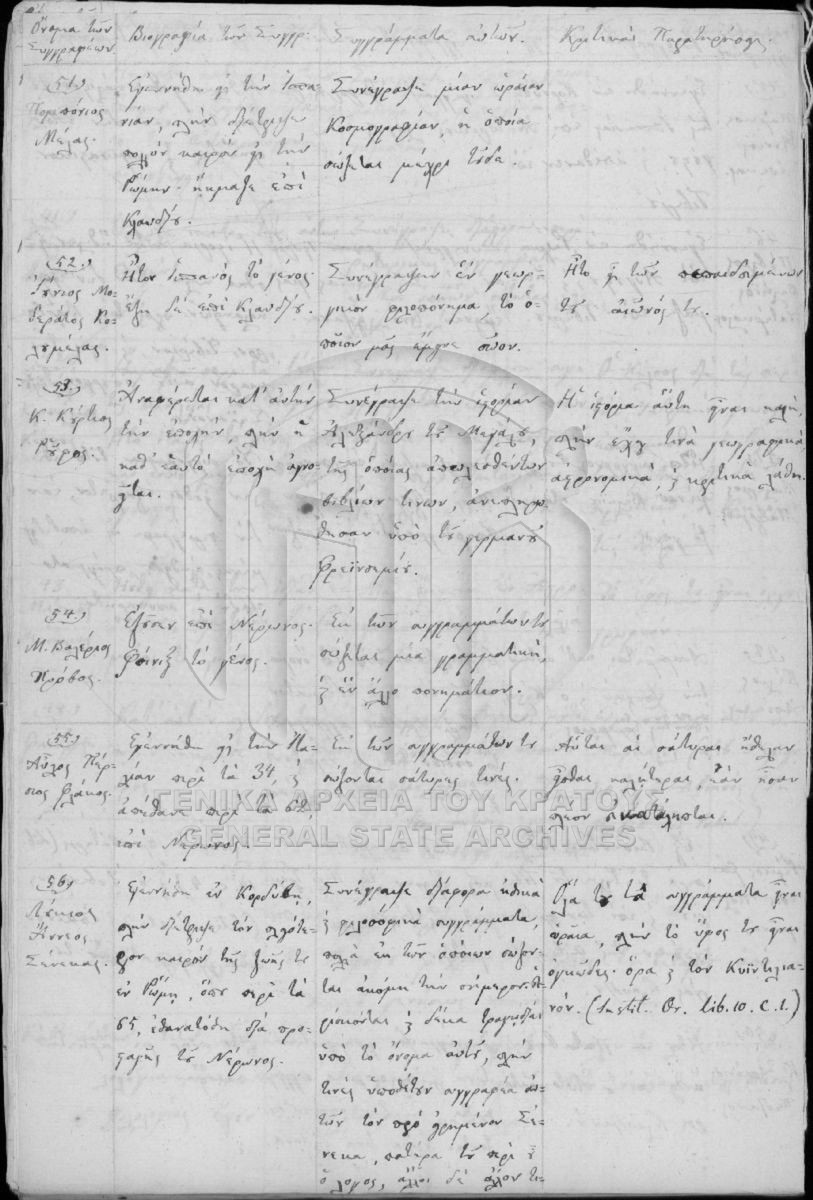 Ὄνομα τῶν
Συγγραφέων.
Βιογραφία τῶν Συγγρ.
Συγγράμματα αὐτῶν.
Κριτικαὶ Παρατηρήσεις.
51)
Πομπόνιος
Μέλας.
Ἐγεννήθη εἰς τὴν Ἱσπα-
νίαν, πλὴν διέτριψε
πολλὸν καιρὸν εἰς τὴν
Ῥώμην· ἤκμαζε ἐπὶ
Κλαυδίου.
Συνέγραψε μίαν ὡραίαν
Κοσμογραφίαν, ἡ ὁποία
σώζεται μέχρι τοῦδε.
52)
Ἰούνιος Μο-
δεράτος Κο-
λυμέλας.
Ἦτον Ἱσπανὸς τὸ γένος·
ἔζη δὲ ἐπὶ Κλαυδίου.
Συνέγραψεν ἓν γεωρ-
γικὸν φιλοπόνημα, τὸ ὁ-
ποῖον μᾶς ἔμεινε σῶον.
Ἦτο εἷς τῶν πεπαιδευμένων
τοῦ αἰῶνός του.
53)
Κ. Κύρτιος
Ῥοῦφος.
Ἀναφέρεται κατ' αὐτὴν
τὴν ἐποχὴν, πλὴν ἡ
καθ' ἑαυτὸ ἐποχὴ ἀγνο-
εῖται.
Συνέγραψε τὴν ἱστορίαν
Ἀλεξάνδρου τοῦ Μεγάλου,
τῆς ὁποίας ἀπολεσθέντων
βιβλίων τινων, ἀνεπληρώ-
θησαν ὑπὸ τοῦ γερμανοῦ
Φρεϊνσεμίου.
Ἡ ἱστορία αὕτη εἶναι καλὴ,
πλὴν ἔχει τινὰ γεωγραφικὰ,
ἀστρονομικὰ, καὶ κριτικὰ λάθη.
54)
Μ. Βαλέριος
Πρόβος.
Ἔζησεν ἐπὶ Νέρωνος.
Φοίνιξ τὸ γένος.
Ἐκ τῶν συγγραμμάτων του
σώζεται μία γραμματικὴ,
καὶ ἓν ἄλλο πονημάτιον.
55)
Αὖλος Πέρ-
σιος Φλάκος.
Ἐγεννήθη εἰς τὴν Ἰτα-
λίαν περὶ τὰ 34, καὶ
ἀπέθανε περὶ τὰ 62,
ἐπὶ Νέρωνος.
Ἐκ τῶν συγγραμμάτων του
σώζονται σάτυρες τινές.
Αὗται αἱ σάτυραι ἤθελεν
εἶσθαι καλήτεραι, ἐὰν ἦσαν
πλέον καταληπταί.
56)
Λούκιος
Ἄννεος
Σένεκας.
Ἐγεννήθη ἐν Κορδούβῃ,
πλὴν διέτριψε τὸν πλειότε-
ρον καιρὸν τῆς ζωῆς του
ἐν Ῥώμῃ, ὅπου περὶ τὰ
65, ἐθανατώθη διὰ προ-
σταγῆς τοῦ Νέρωνος.
Συνέγραψε διάφορα ἠθικὰ
καὶ φιλοσοφικὰ συγγράμματα,
πολλὰ ἐκ τῶν ὁποίων σώζον-
ται ἀκόμη τὴν σήμερον. εὑ-
ρίσκονται καὶ δέκα τραγῳδίαι
ὑπὸ τὸ ὄνομα αὐτοῦ, πλὴν
τινὲς ὑποθέτουν συγγραφέα αὐ-
τῶν τὸν πρὸ εἰρημένον Σέ-
νεκα, πατέρα τοῦ περὶ οὗ
ὁ λόγος, ἄλλοι δὲ ἄλλον τι-
Ὅλα του τὰ συγγράμματα εἶναι
ὡραῖα, πλὴν τὸ ὕφος του εἶναι
ὀγκῶδες· ὅρα καὶ τὸν Κυϊντιλια-
νόν. (Instit. Or. Lib. 10. C. 1.)
ΓΕΝΙΚΑ ΑΡΧΕΙΑ ΤΟΥ ΚΡΑΤΟΥΣ
GENERAL STATE ARCHIVES